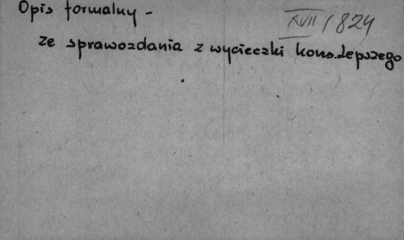 Opis formalny -
XVII / 824
ze sprawozdania z wycieczki kons. Lepszego